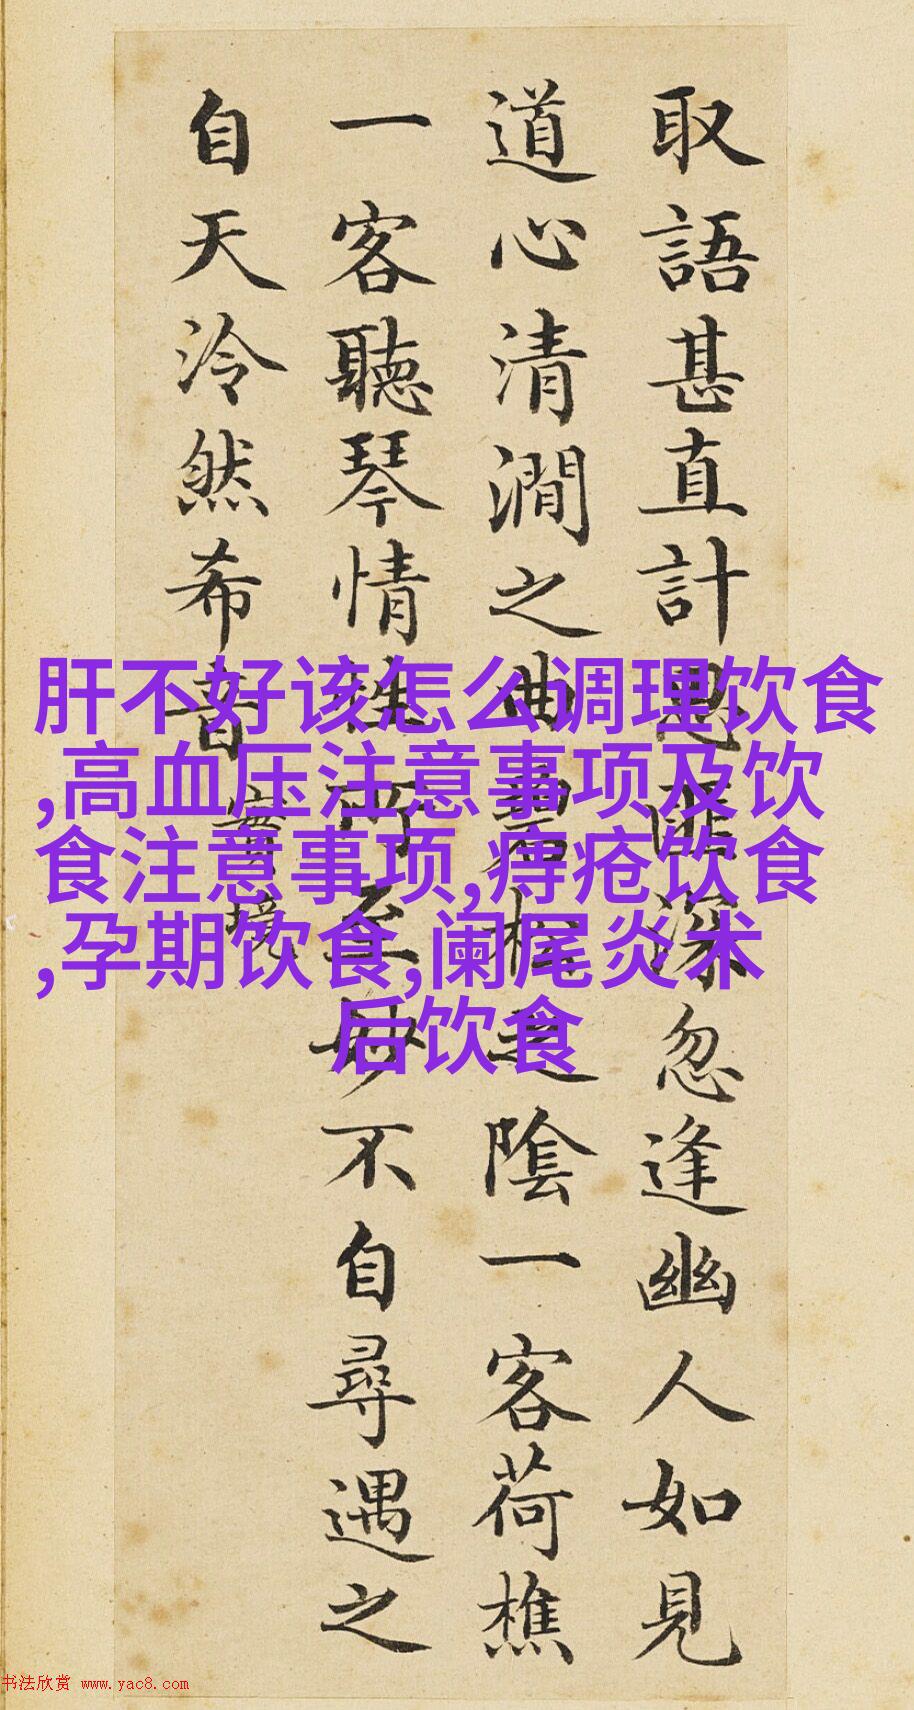 取語甚直計思匪深忽逢幽人如見
道心清澗之曲碧松之陰一客荷樵
一客聽琴情性所至妙不自尋遇之
自天泠然希音
實境
肝不好该怎么调理饮食
,高血压注意事项及饮
食注意事项,痔疮饮食
,孕期饮食,阑尾炎术
后饮食
书法欣赏 www.yac8.com